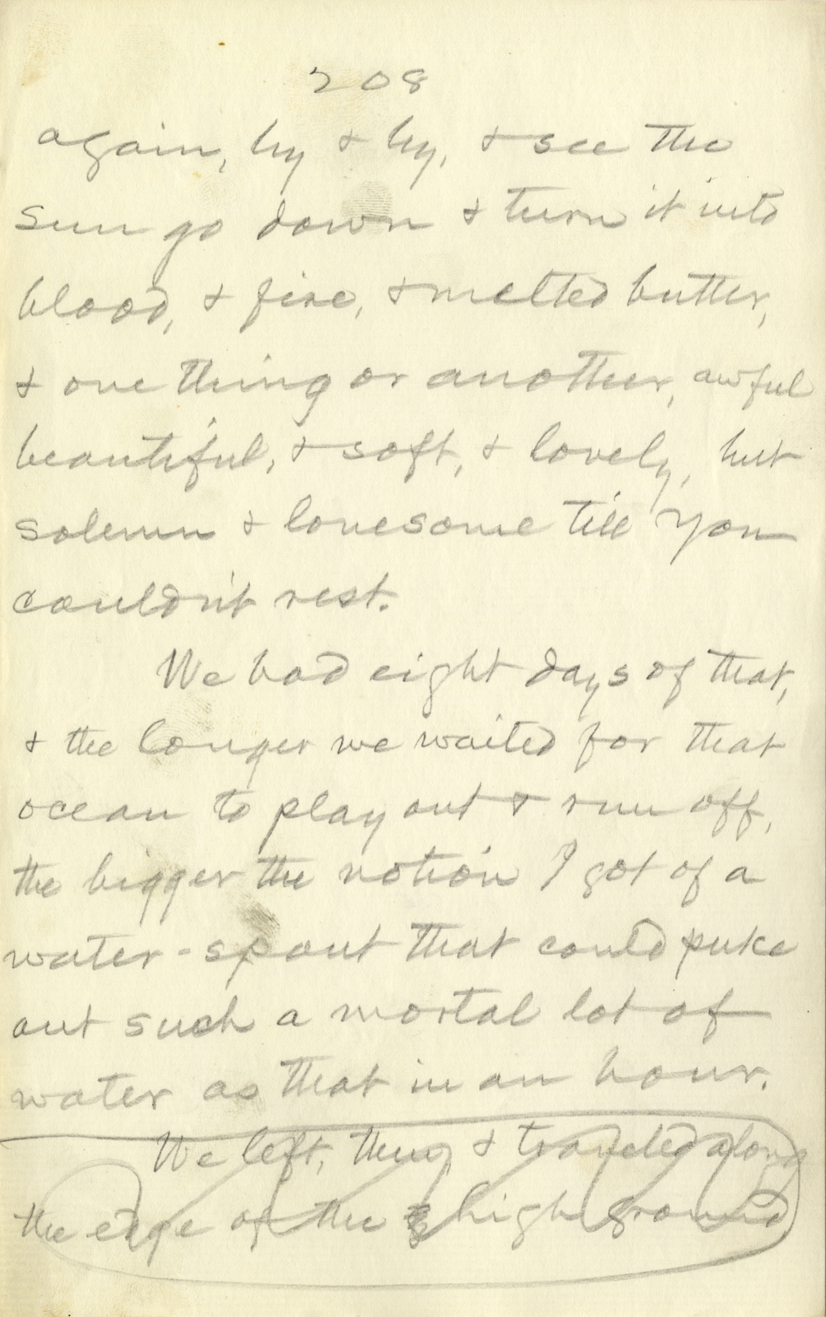 208
again, by & by, & see the
sun go down & turn it into
blood, & fire, & melted butter,
& one thing or another, awful
beautiful, & soft, & lovely, but
solemn & lonesome till you
couldn't rest.
We had eight days of that,
& the longer we waited for that
ocean to play out & run off,
the bigger the notion I got of a
water-spout that could puke
out such a mortal lot of
water as that in an hour.
We left, then, & traveled along
the edge of the high ground